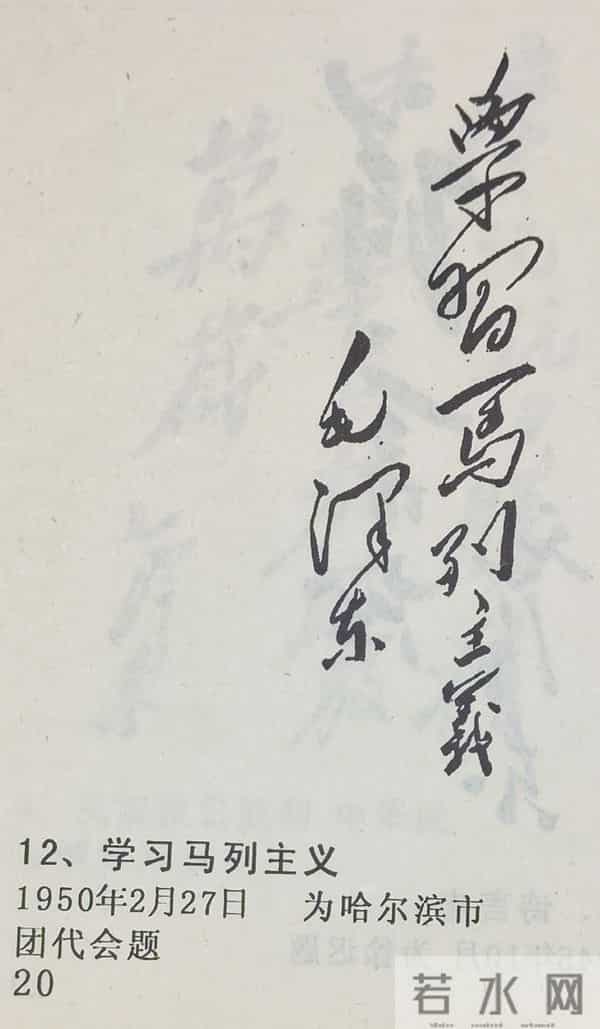 學習馬列主義
毛泽东
12、学习马列主义
1950年2月27日 为哈尔滨市
团代会题
20
若水网